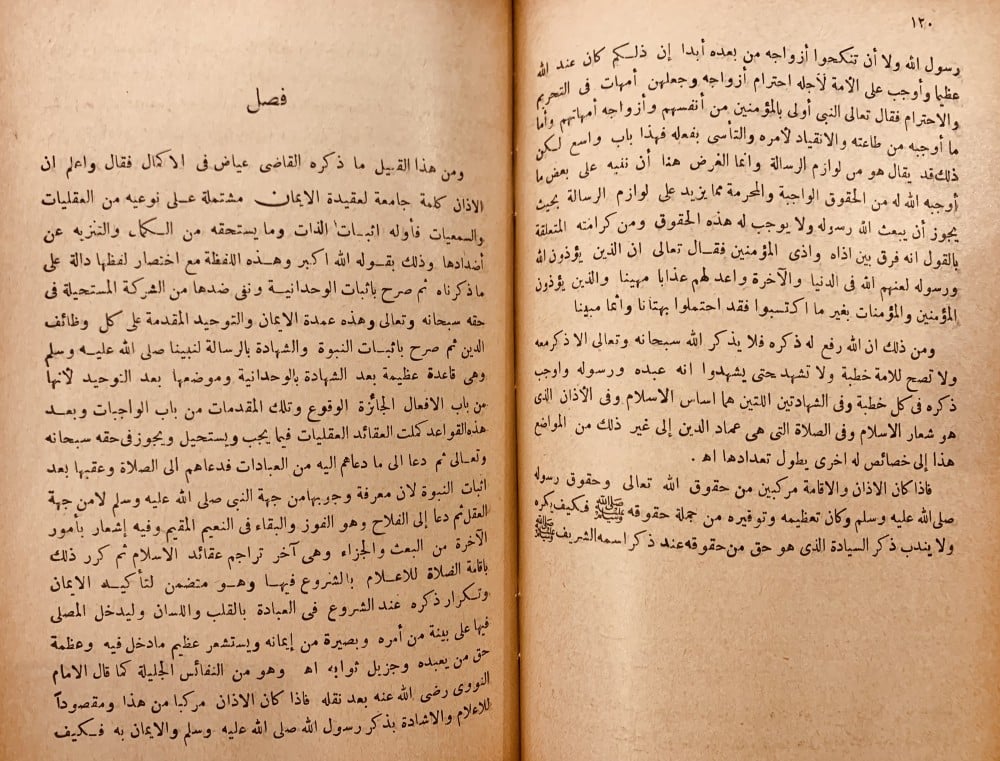 ١٢٠
رسول الله ولا أن تنكحوا أزواجه من بعده أبدا إن ذلكم كان عند الله
عظيما وأوجب على الأمة لأجله احترام أزواجه وجعلهن أمهات فى التحريم
والاحترام فقال تعالى النبى أولى بالمؤمنين من أنفسهم وأزواجه أمهاتهم وأما
ما أوجبه من طاعته والانقياد لأمره والتأسى بفعله فهذا باب واسع لكن
ذلك قد يقال هو من لوازم الرسالة وانما الغرض هنا أن ننبه على بعض ما
أوجبه الله له من الحقوق الواجبة والمحرمة مما يزيد على لوازم الرسالة بحيث
يجوز أن يبعث الله رسوله ولا يوجب له هذه الحقوق ومن كرامته المتعلقة
بالقول انه فرق بين اذاه واذى المؤمنين فقال تعالى ان الذين يؤذون الله
ورسوله لعنهم الله فى الدنيا والآخرة واعد لهم عذابا مهينا والذين يؤذون
المؤمنين والمؤمنات بغير ما اكتسبوا فقد احتملوا بهتانا واثما مبينا
ومن ذلك ان الله رفع له ذكره فلا يذكر الله سبحانه وتعالى الا ذكر معه
ولا تصح للامة خطبة ولا تشهد حتى يشهدوا انه عبده ورسوله واوجب
ذكره فى كل خطبة وفى الشهادتين اللتين هما اساس الاسلام وفى الأذان الذى
هو شعار الاسلام وفى الصلاة التى هى عماد الدين إلى غير ذلك من المواضع
هذا إلى خصائص له اخرى يطول تعدادها اهـ .
فاذا كان الاذان والاقامة مركبين من حقوق الله تعالى وحقوق رسوله
صلى الله عليه وسلم وكان تعظيمه وتوقيره من جملة حقوقه ﷺ فكيف يكره
ولا يندب ذكر السيادة الذى هو حق من حقوقه عند ذكر اسمه الشريف ﷺ
فصل
ومن هذا القبيل ما ذكره القاضى عياض فى الاكمال فقال واعلم ان
الاذان كلمة جامعة لعقيدة الايمان مشتملة على نوعيه من العقليات
والسمعيات فأوله اثبات الذات وما يستحقه من الكمال والتنزيه عن
أضدادها وذلك بقوله الله اكبر وهذه اللفظة مع اختصار لفظها دالة على
ما ذكرناه ثم صرح باثبات الوحدانية ونفى ضدها من الشركة المستحيلة فى
حقه سبحانه وتعالى وهذه عمدة الايمان والتوحيد المقدمة على كل وظائف
الدين ثم صرح باثبات النبوة والشهادة بالرسالة لنبينا صلى الله عليه وسلم
وهى قاعدة عظيمة بعد الشهادة بالوحدانية وموضعها بعد التوحيد لأنها
من باب الافعال الجائزة الوقوع وتلك المقدمات من باب الواجبات وبعد
هذه القواعد كملت العقائد العقليات فيما يجب ويستحيل ويجوز فى حقه سبحانه
وتعالى ثم دعا الى ما دعاهم اليه من العبادات فدعاهم الى الصلاة وعقبها بعد
اثبات النبوة لان معرفة وجوبها من جهة النبى صلى الله عليه وسلم لا من جهة
العقل ثم دعا إلى الفلاح وهو الفوز والبقاء فى النعيم المقيم وفيه إشعار بأمور
الآخرة من البعث والجزاء وهى آخر تراجم عقائد الاسلام ثم كرر ذلك
باقامة الصلاة للاعلام بالشروع فيها وهو متضمن لتأكيد الايمان
وتكرار ذكره عند الشروع فى العبادة بالقلب واللسان وليدخل المصلى
فيها على بينة من أمره وبصيرة من إيمانه ويستشعر عظيم ما دخل فيه وعظمة
حق من يعبده وجزيل ثوابه اهـ وهو من النفائس الجليلة كما قال الامام
النووى رضى الله عنه بعد نقله فاذا كان الاذان مركبا من هذا ومقصوداً
للاعلام والاشادة بذكر رسول الله صلى الله عليه وسلم والايمان به فكيف